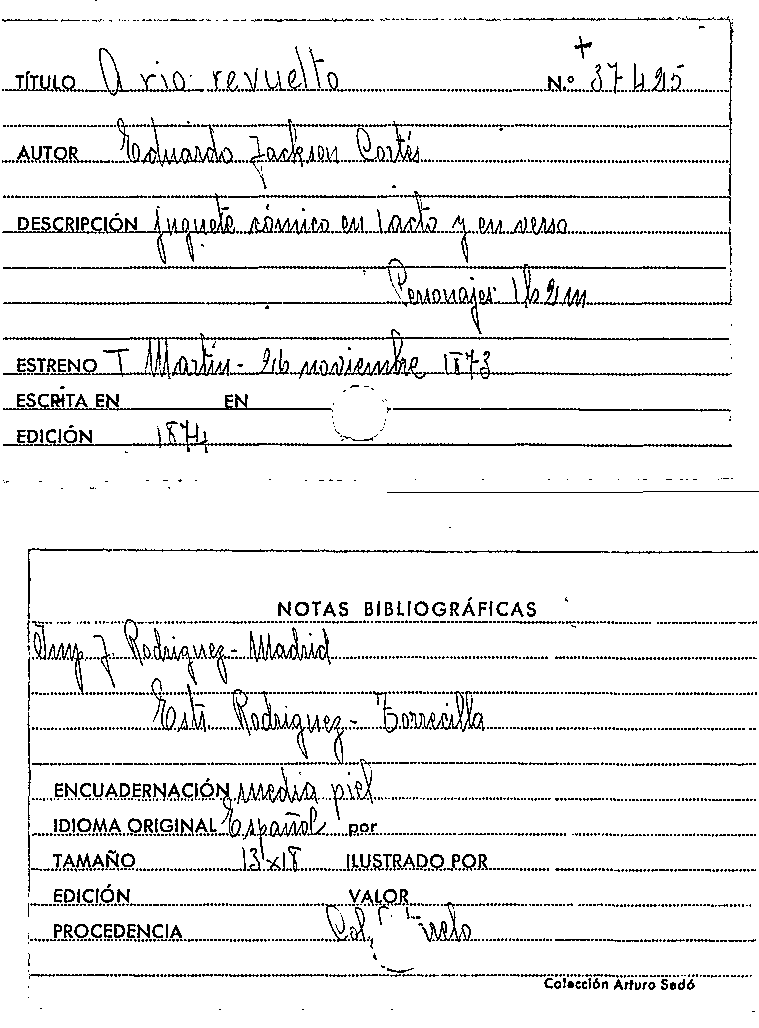 TÍTULO A rio revuelto N.º 37425
AUTOR Eduardo Jackson Cortés
DESCRIPCIÓN juguete cómico en 1 acto y en verso
Personajes 1h 2m
ESTRENO T Martín - 26 noviembre 1873
ESCRITA EN EN
EDICIÓN 1874
NOTAS BIBLIOGRÁFICAS
Imp J. Rodriguez - Madrid
Estr. Rodriguez - Torrecilla
ENCUADERNACIÓN media piel
IDIOMA ORIGINAL Español por
TAMAÑO 13x18 ILUSTRADO POR
EDICIÓN VALOR
PROCEDENCIA Col.
Colección Arturo Sedó